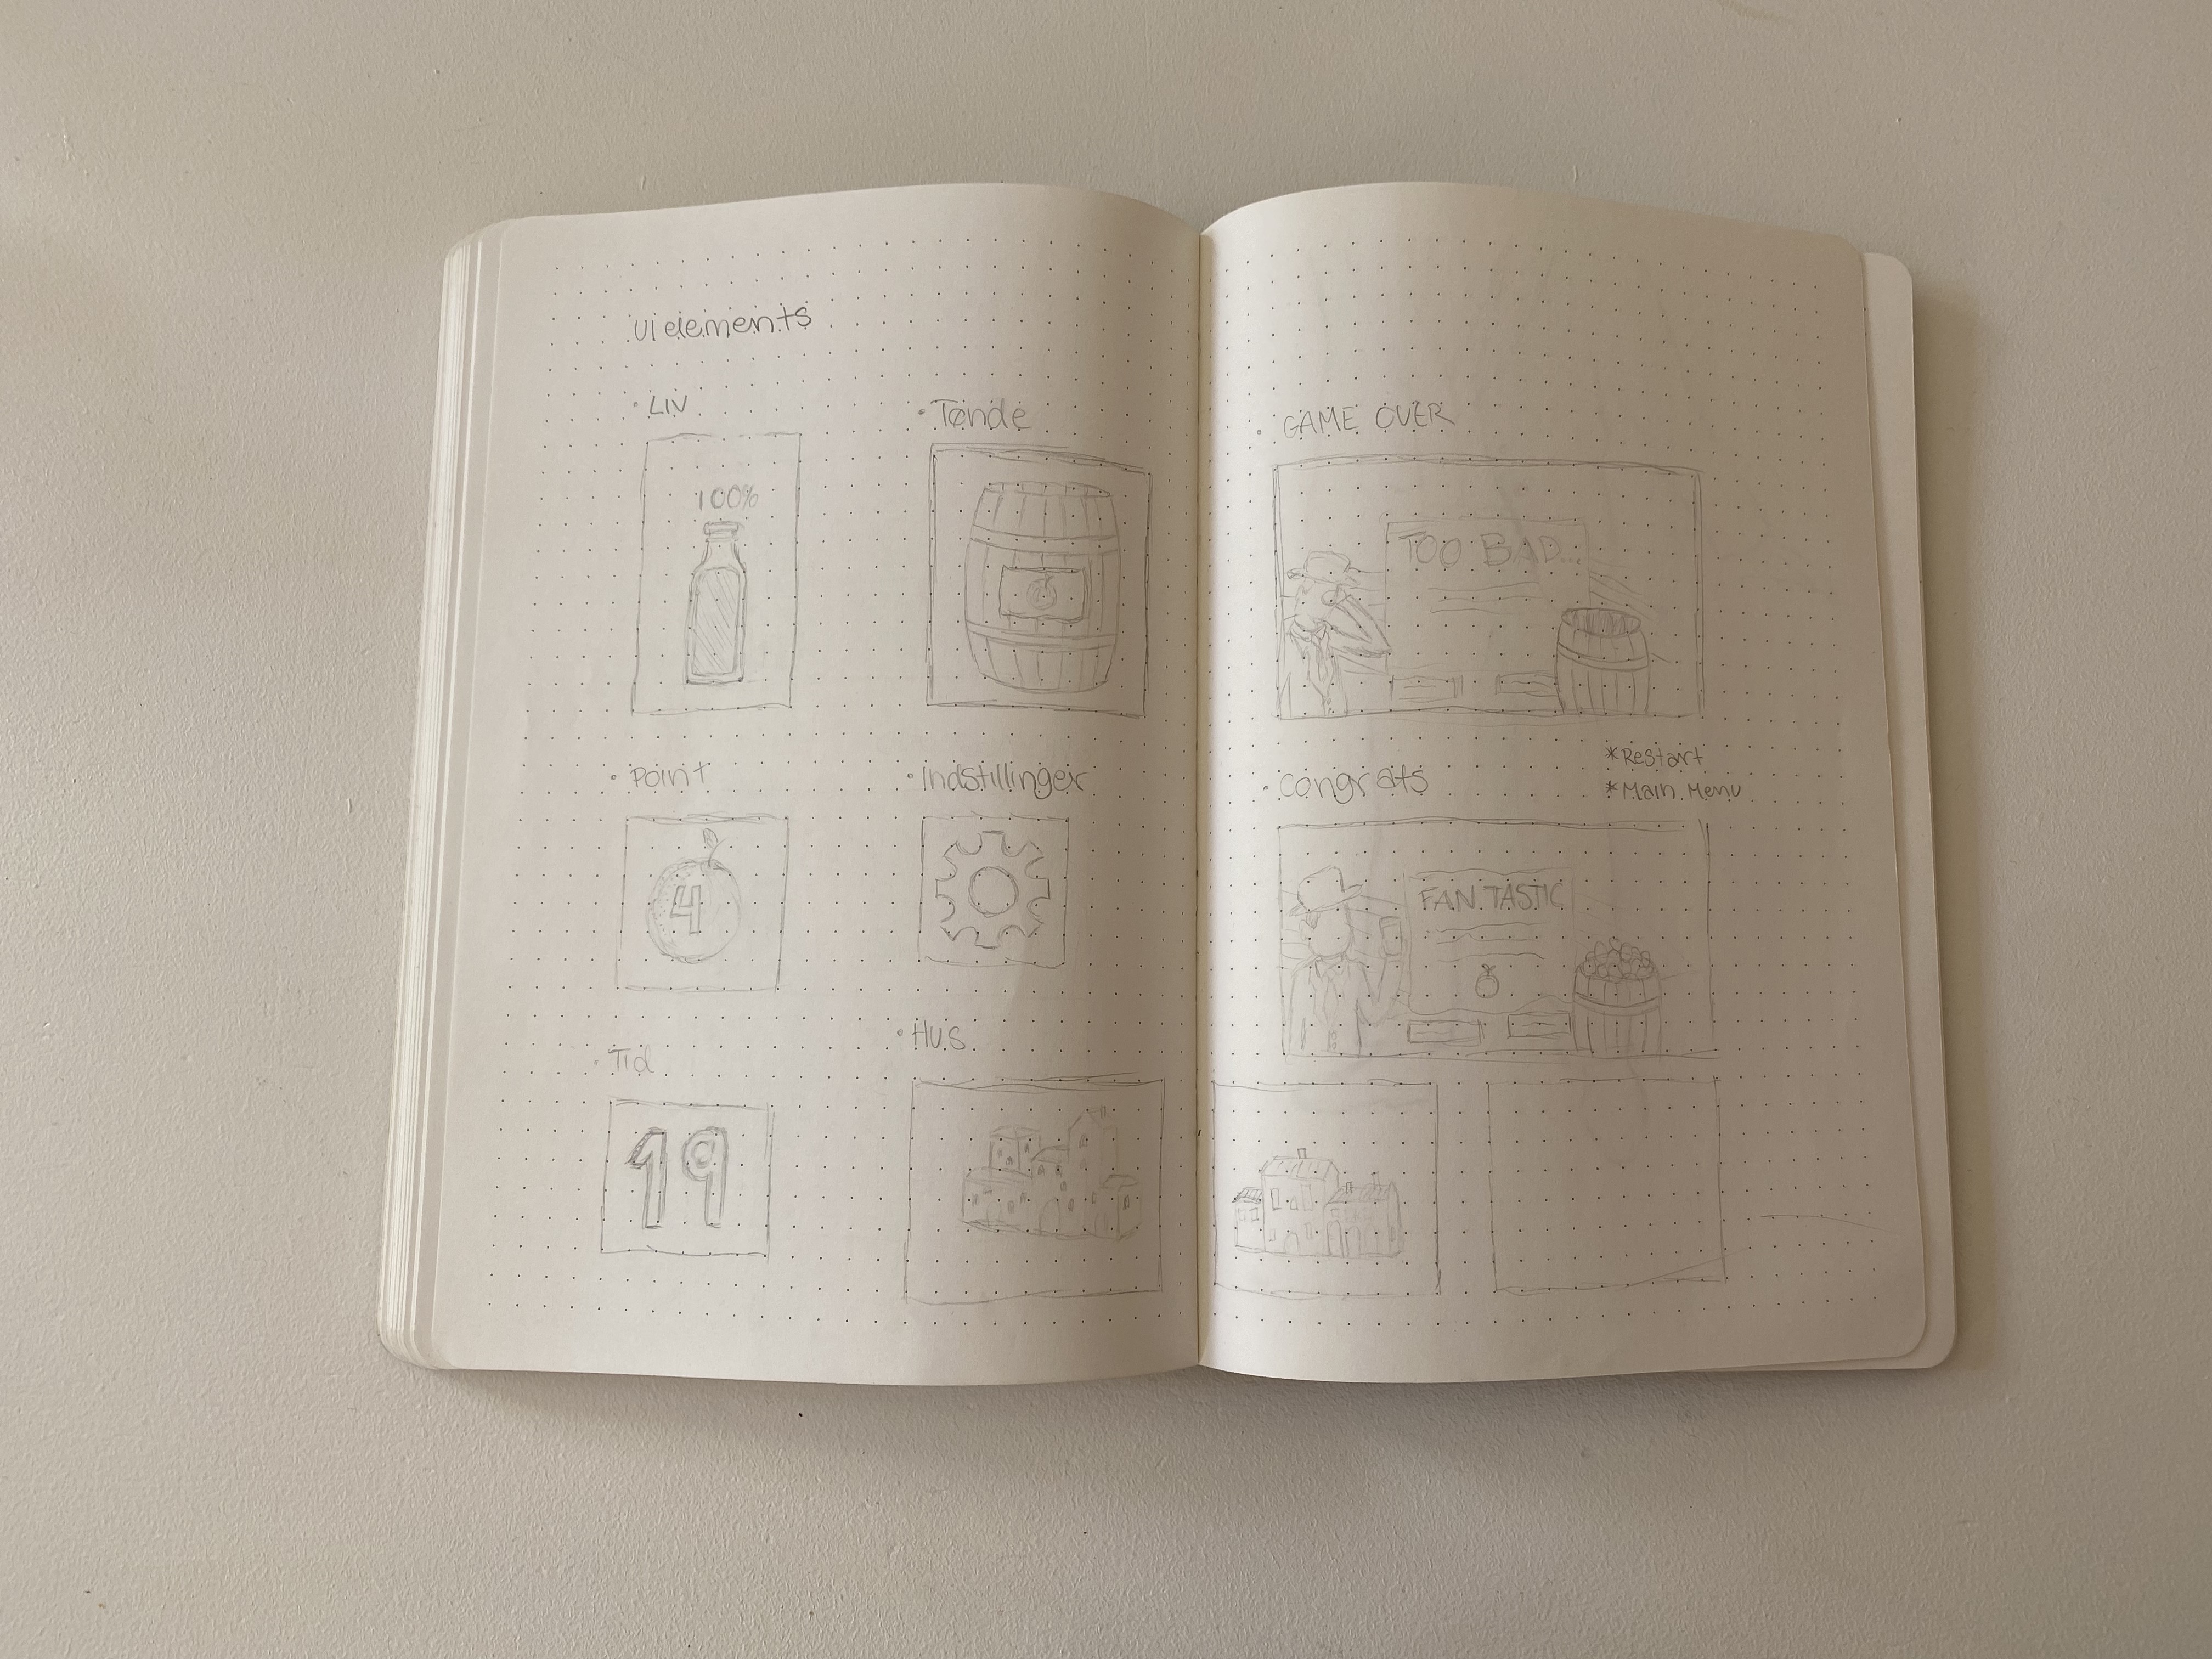 UI elements
• Liv
100%
• Tønde
• Point
4
• Indstillinger
• Tid
19
• Hus
• GAME OVER
TOO BAD...
*Restart
*Main Menu
• Congrats
FANTASTIC